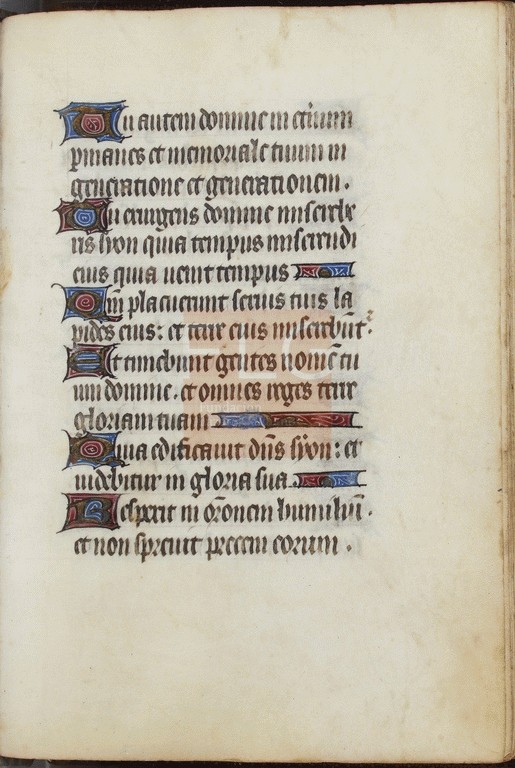 Tu autem domine in et̄num
ꝑmanes et memoriale tuum in
generatione et generationem.
Tu exurgens domine misere be
ris syon quia tempus miserendi
eius quia uenit tempus
Qm̄ placuerunt seruis tuis la
pides eius: et terre eius misereb̄ūt².
Et timebunt gentes nomē tu
um domine. et omnes reges terre
gloriam tuam
Quia edificauit dn̄s syon: et
uidebitur in gloria sua
Respexit in or̄onem humiliū.
et non spreuit precem eorum.
FLG
Fundación